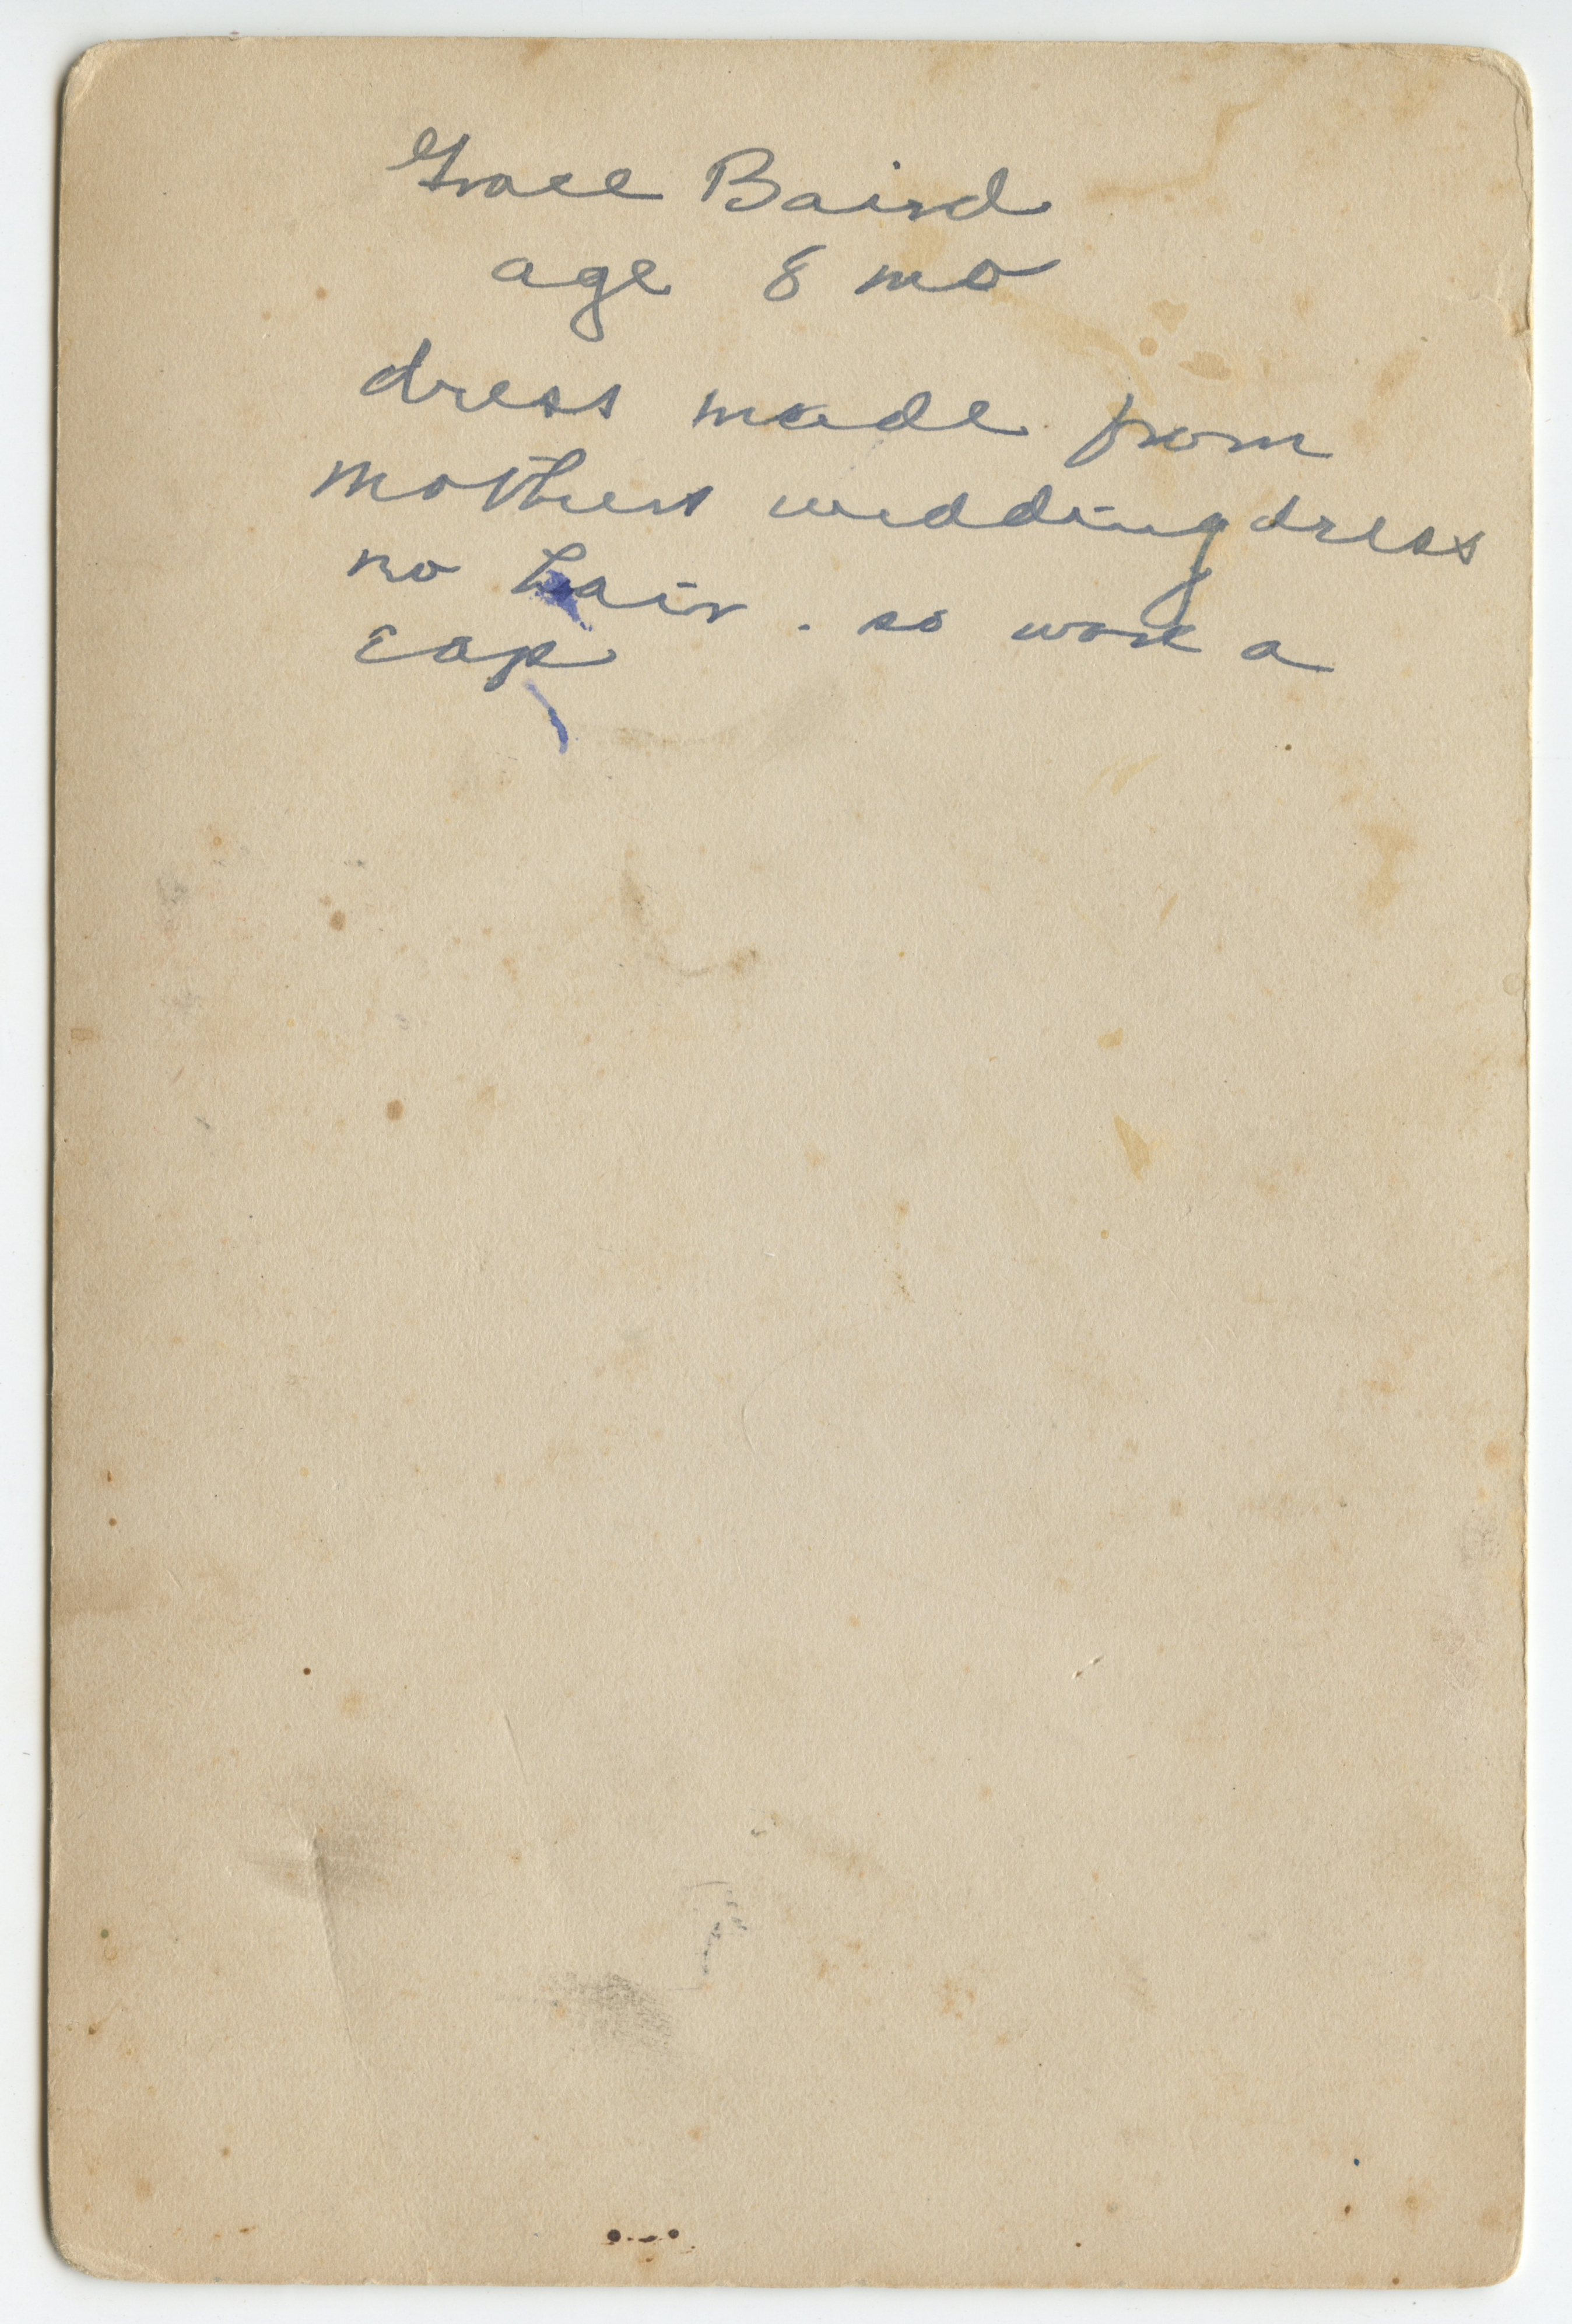 Grace Baird
age 8 mo
dress made from
mothers wedding dress
no hair. so wore a
cap